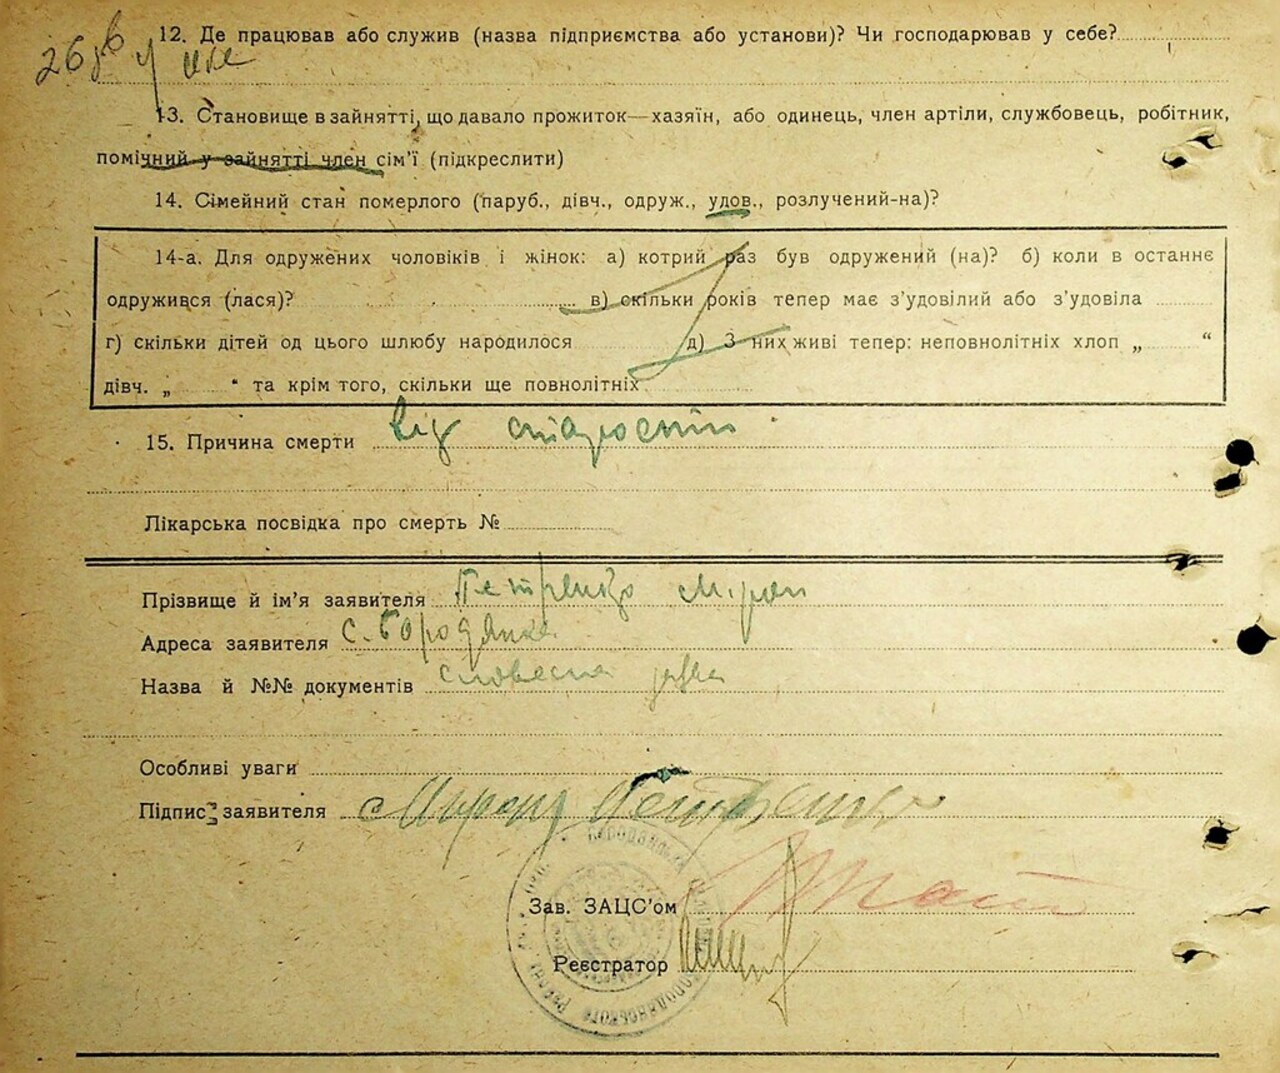 12. Де працював або служив (назва підприємства або установи)? Чи господарював у себе?
13. Становище в зайнятті, що давало прожиток—хазяїн, або одинець, член артіли, службовець, робітник,
помічний у зайнятті член сім'ї (підкреслити)
14. Сімейний стан померлого (паруб., дівч., одруж., удов., розлучений-на)?
14-а. Для одружених чоловіків і жінок: а) котрий раз був одружений (на)? б) коли в останнє
одружився (лася)? в) скільки років тепер має з'удовілий або з'удовіла
г) скільки дітей од цього шлюбу народилося д) З них живі тепер: неповнолітніх хлоп „ “
дівч. „ “ та крім того, скільки ще повнолітніх
15. Причина смерти Від старости
Лікарська посвідка про смерть №
Прізвище й ім'я заявителя Петренко Мірон
Адреса заявителя с. Бородянка
Назва й №№ документів словесна заява
Особливі уваги
Підпис заявителя Мирон Петренко
Зав. ЗАЦС'ом
Реєстратор